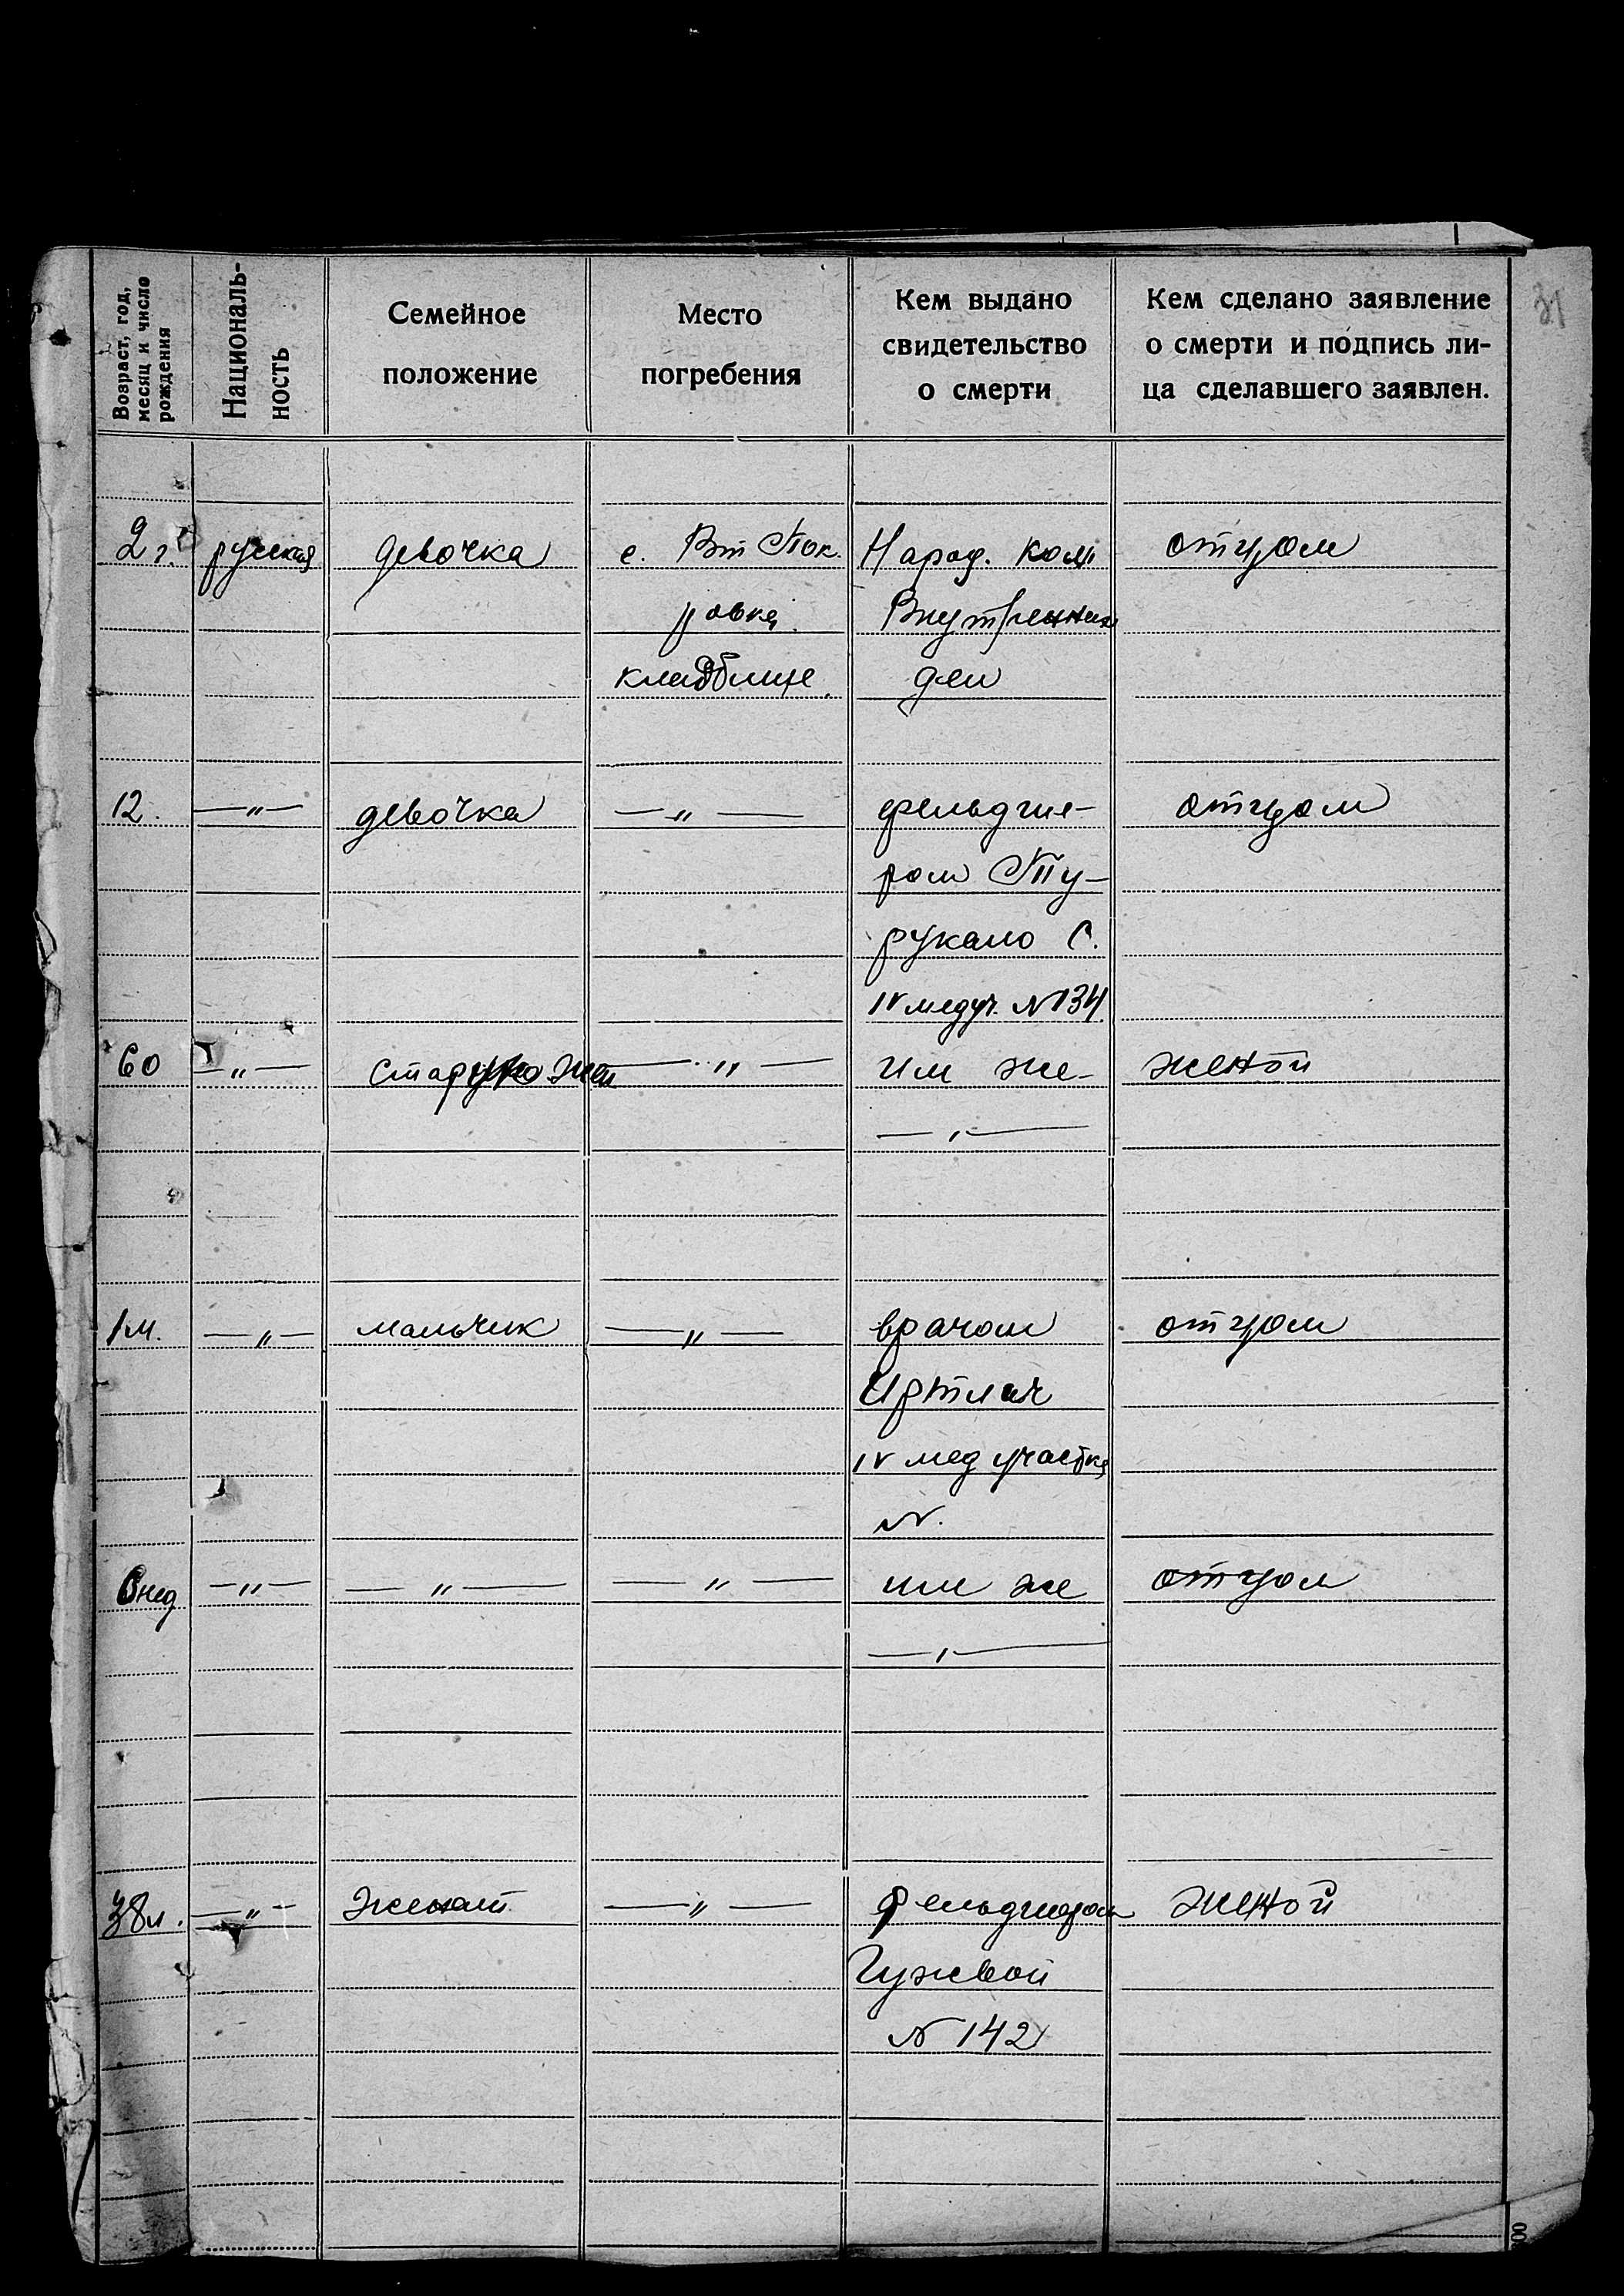 Возраст, год,
месяц и число
рождения
Националь-
ность
Семейное
положение
Место
погребения
Кем выдано
свидетельство
о смерти
Кем сделано заявление
о смерти и подпись ли-
ца сделавшего заявлен.
31
2 г. русская девочка с. Вт Пок. Народ. Ком отцом
ровка. Внутренних
кладбище. дел
12. —„— девочка —„— фельдше- отцом
ром
С.
IV медуч. №134
60 —„— —„— им же- женой
—„—
1 м. —„— мальчик —„— врачом отцом
IV мед участка
№.
6 нед —„— —„— —„— им же отцом
—„—
38 л. —„— Женат —„— фельдшером женой
Гужвой
№ 142